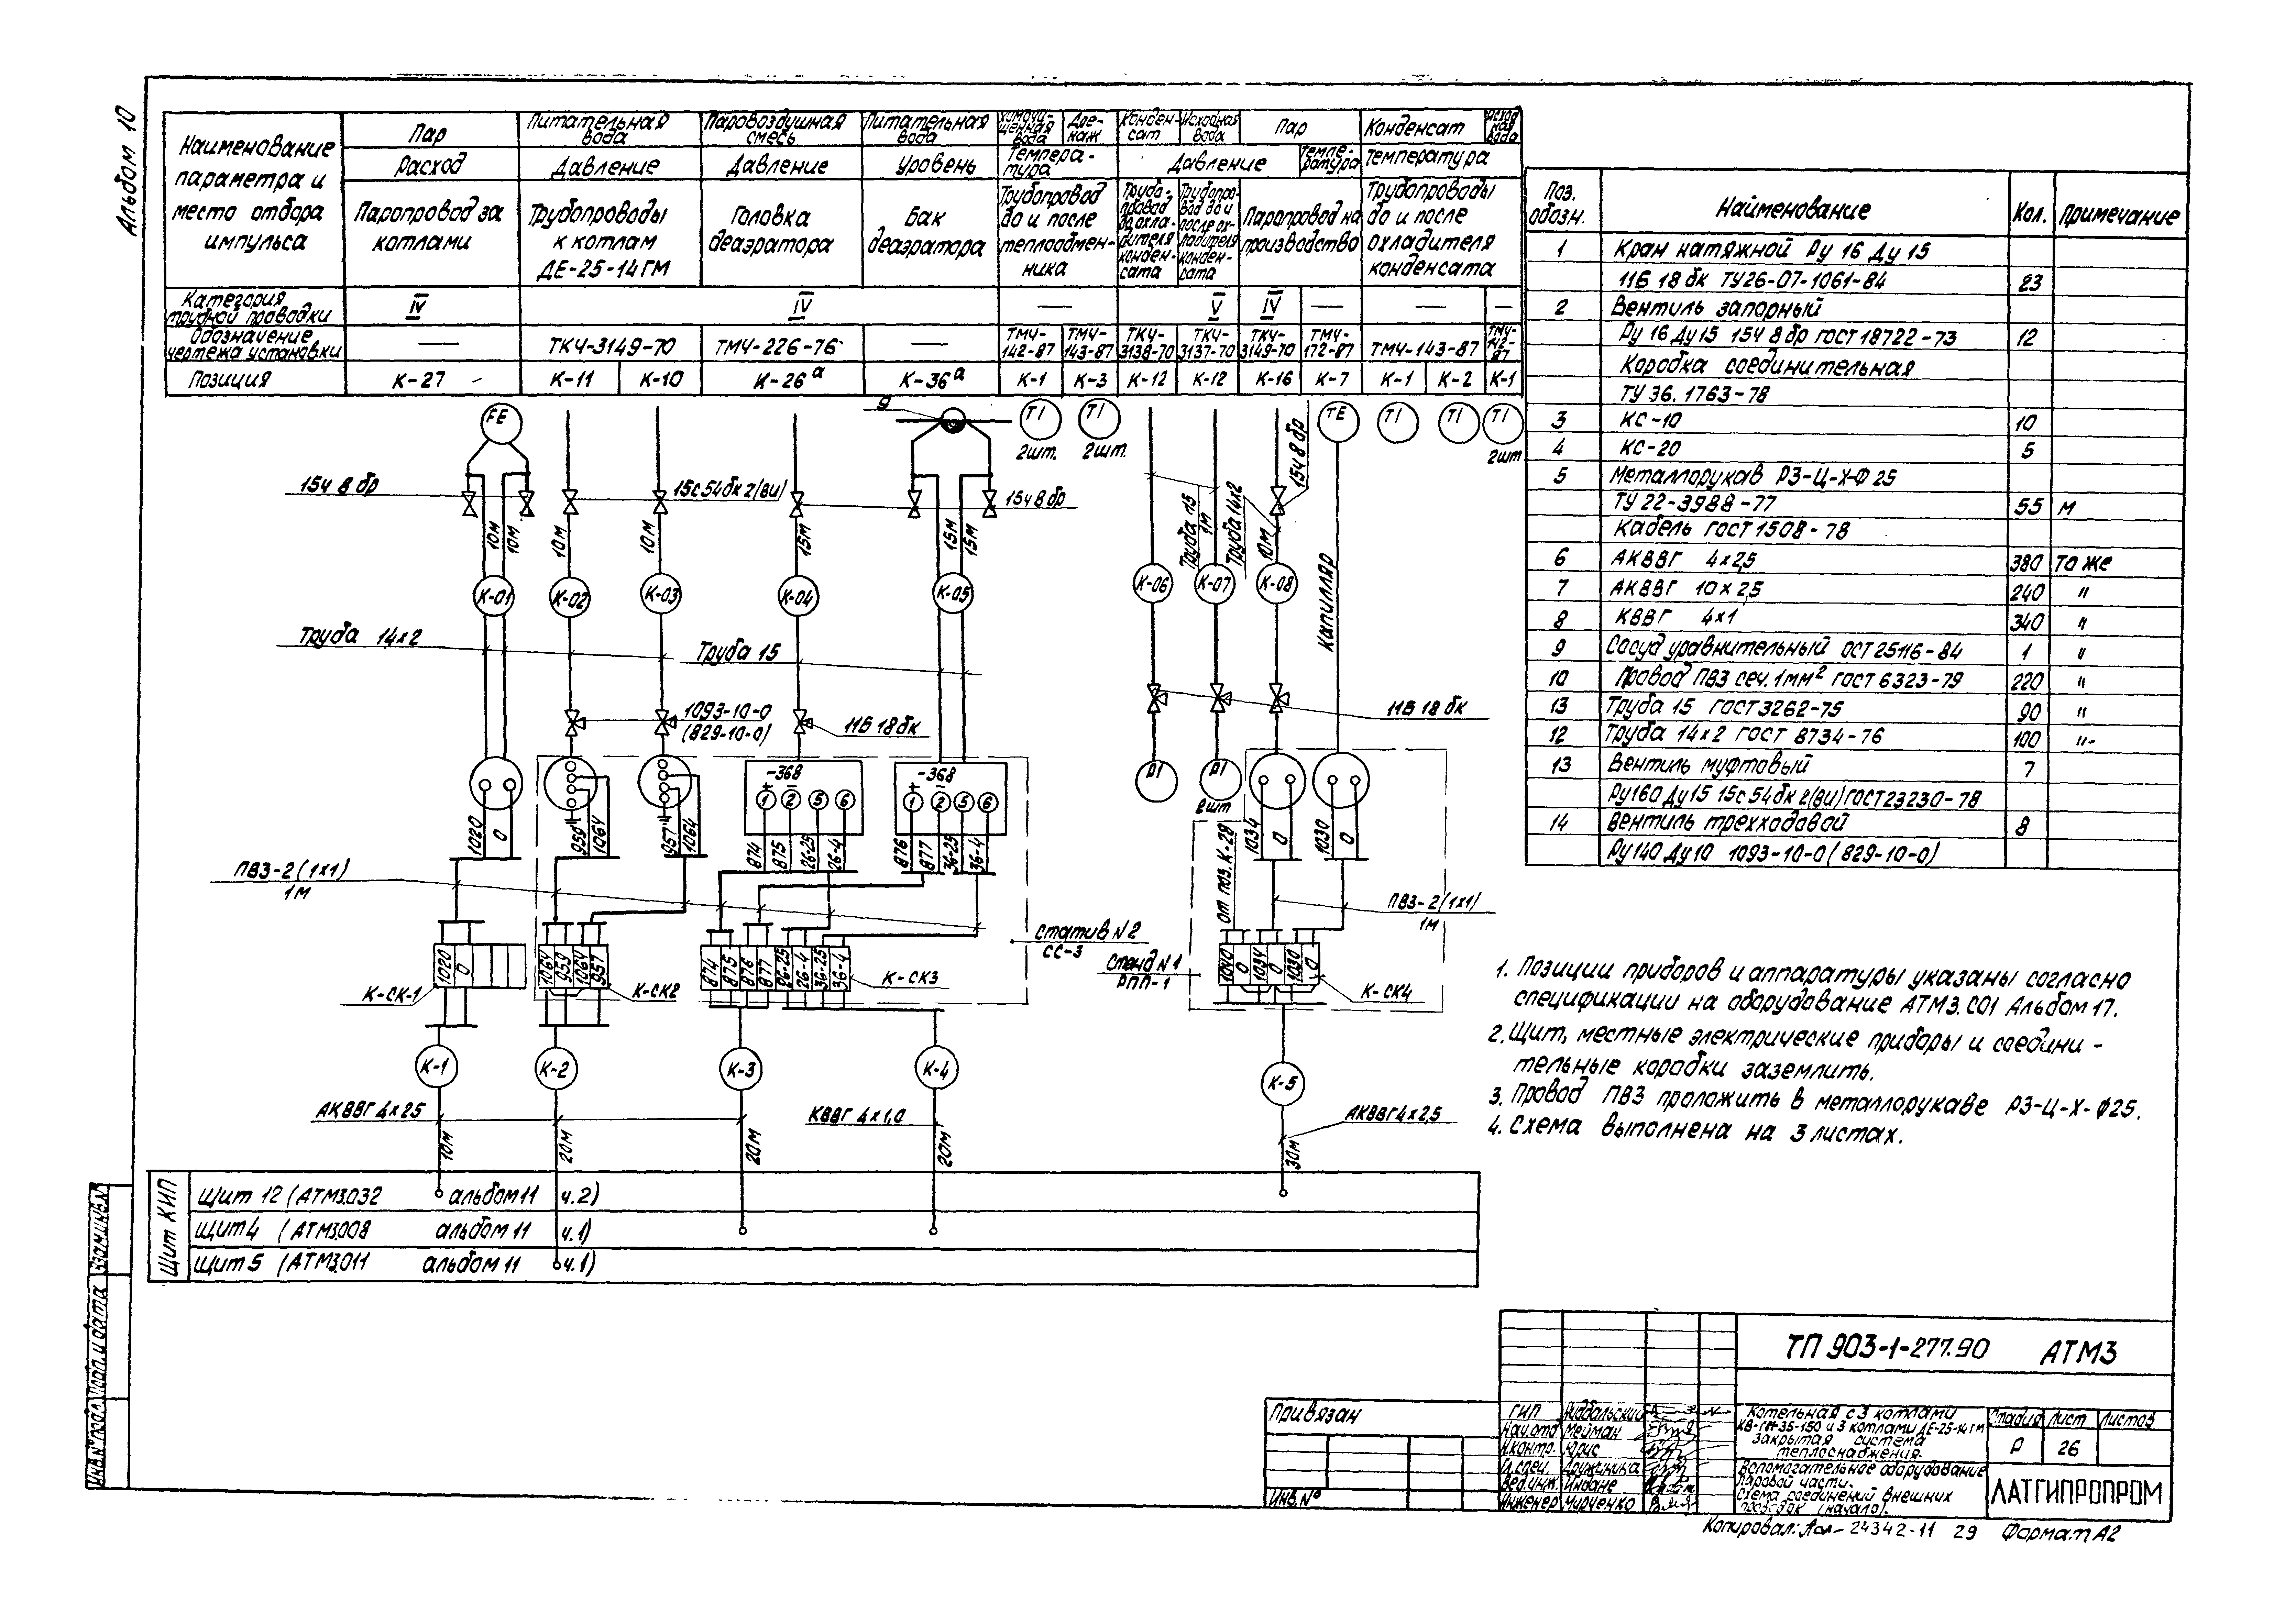 Альбом 10
Наименование
параметра и
место отбора
импульса
Пар
Расход
Паропровод за
котлами
Питательная
вода
Давление
Трубопроводы
к котлам
ДЕ-25-14ГМ
Паровоздушная
смесь
Давление
Головка
деаэратора
Питательная
вода
Уровень
Бак
деаэратора
Химочи-
щенная
вода
Дре-
наж
Темпера-
тура
Трубопровод
до и после
теплообмен-
ника
Конден-
сат
Исходная
вода
Пар
Давление
Темпе-
ратура
Трубо-
провод
до охла-
дителя
конден-
сата
Трубопро-
вод до и
после ох-
ладителя
конден-
сата
Паропровод на
производство
Конденсат
Исход
ная
вода
Температура
Трубопроводы
до и после
охладителя
конденсата
Категория
трубной проводки
IV
IV
—
V
IV
—
—
—
Обозначение
чертежа установки
—
ТКЧ-3149-70
ТМЧ-226-76
—
ТМЧ-
142-87
ТМЧ-
143-87
ТКЧ-
3138-70
ТКЧ-
3137-70
ТКЧ-
3149-70
ТМЧ-
172-87
ТМЧ-143-87
ТМЧ-
142-
87
Позиция
К-27
К-11
К-10
К-26а
К-36а
К-1
К-3
К-12
К-12
К-16
К-7
К-1
К-2
К-1
FE
9
TI
2шт.
TI
2шт.
TE
TI
TI
TI
2шт
15ч 8 бр
15с54бк2(ВИ)
15ч 8 бр
15ч 8 бр
10м
10м
10м
10м
15м
15м
15м
Труба 15
1м
Труба 14х2
10м
Капилляр
К-01
К-02
К-03
К-04
К-05
К-06
К-07
К-08
Труба 14х2
Труба 15
1093-10-0
(829-10-0)
11Б 18 бк
11Б 18 бк
-368
+ −
1 2 5 6
-368
+ −
1 2 5 6
PI
PI
2шт
1020
0
959
1064
957
1064
874
875
26-25
26-4
876
877
36-25
36-4
от поз. К-28
1034
0
1030
0
ПВ3-2(1х1)
1м
ПВ3-2(1х1)
1м
Статив N2
СС-3
Стенд N1
РПП-1
1020
0
К-СК-1
1064
959
1064
957
К-СК2
874
875
876
877
26-25
26-4
36-25
36-4
К-СК3
1040
0
1034
0
1030
0
К-СК4
К-1
К-2
К-3
К-4
К-5
АКВВГ 4х25
КВВГ 4х1,0
АКВВГ4х2,5
10м
20м
20м
20м
30м
Щит КИП
Щит 12 (АТМ3.032 альбом 11 ч.2)
Щит 4 (АТМ3.008 альбом 11 ч.1)
Щит 5 (АТМ3.011 альбом 11 ч.1)
Поз.
обозн.
Наименование
Кол.
Примечание
1 Кран натяжной Ру 16 Ду 15
11Б 18 бк ТУ26-07-1061-84 23
2 Вентиль запорный
Ру 16 Ду15 15ч 8 бр гост 18722-73 12
Коробка соединительная
ТУ 36. 1763-78
3 КС-10 10
4 КС-20 5
5 Металлорукав РЗ-Ц-Х-Ф 25
ТУ 22-3988-77 55 м
Кабель гост 1508-78
6 АКВВГ 4х2,5 380 то же
7 АКВВГ 10х2,5 240 "
8 КВВГ 4х1 340 "
9 Сосуд уравнительный ОСТ 25116-84 1 "
10 Провод ПВ3 сеч. 1мм² гост 6323-79 220 "
13 Труба 15 гост 3262-75 90 "
12 Труба 14х2 гост 8734-76 100 "-
13 Вентиль муфтовый 7
Ру160 Ду15 15с54бк2(ВИ) гост 23230-78
14 Вентиль трехходовой 8
Ру140 Ду10 1093-10-0 (829-10-0)
1. Позиции приборов и аппаратуры указаны согласно
спецификации на оборудование АТМ3.С01 Альбом 17.
2. Щит, местные электрические приборы и соедини-
тельные коробки заземлить.
3. Провод ПВ3 проложить в металлорукаве РЗ-Ц-Х-Ф25.
4. Схема выполнена на 3 листах.
ТП 903-1-277.90 АТМ3
Привязан
Инв.N°
ГИП
Нач.отд Мейман
Н.контр. Юрис
Гл.спец. Дружинина
Вед.инж. Индане
Инженер Мирченко
Котельная с 3 котлами
КВ-ГМ-35-150 и 3 котлами ДЕ-25-14ГМ
закрытая система
теплоснабжения.
Стадия Лист Листов
Р 26
Вспомогательное оборудование
паровой части.
Схема соединений внешних
проводок (начало).
ЛАТГИПРОПРОМ
Копировал: 24342-11 29 Формат А2
Взам.инв.N
Подп. и дата
Инв.N°подл.